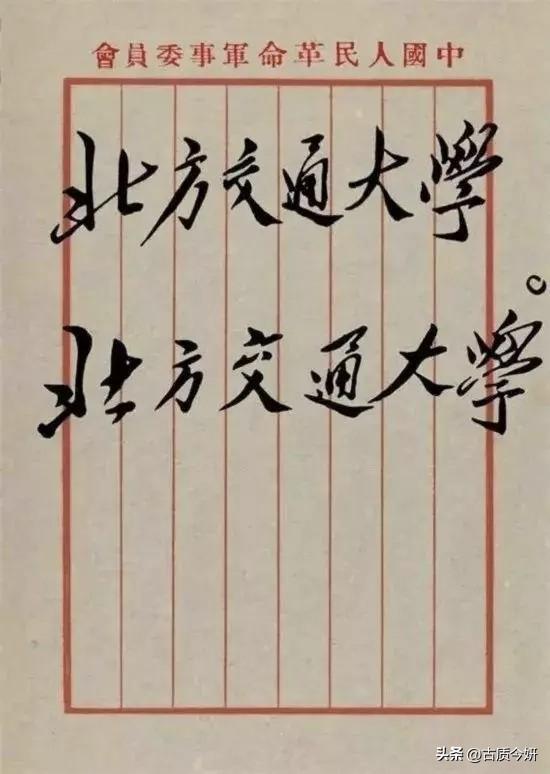 中國人民革命軍事委員會
北方交通大學
北方交通大學
头条 @古质今妍